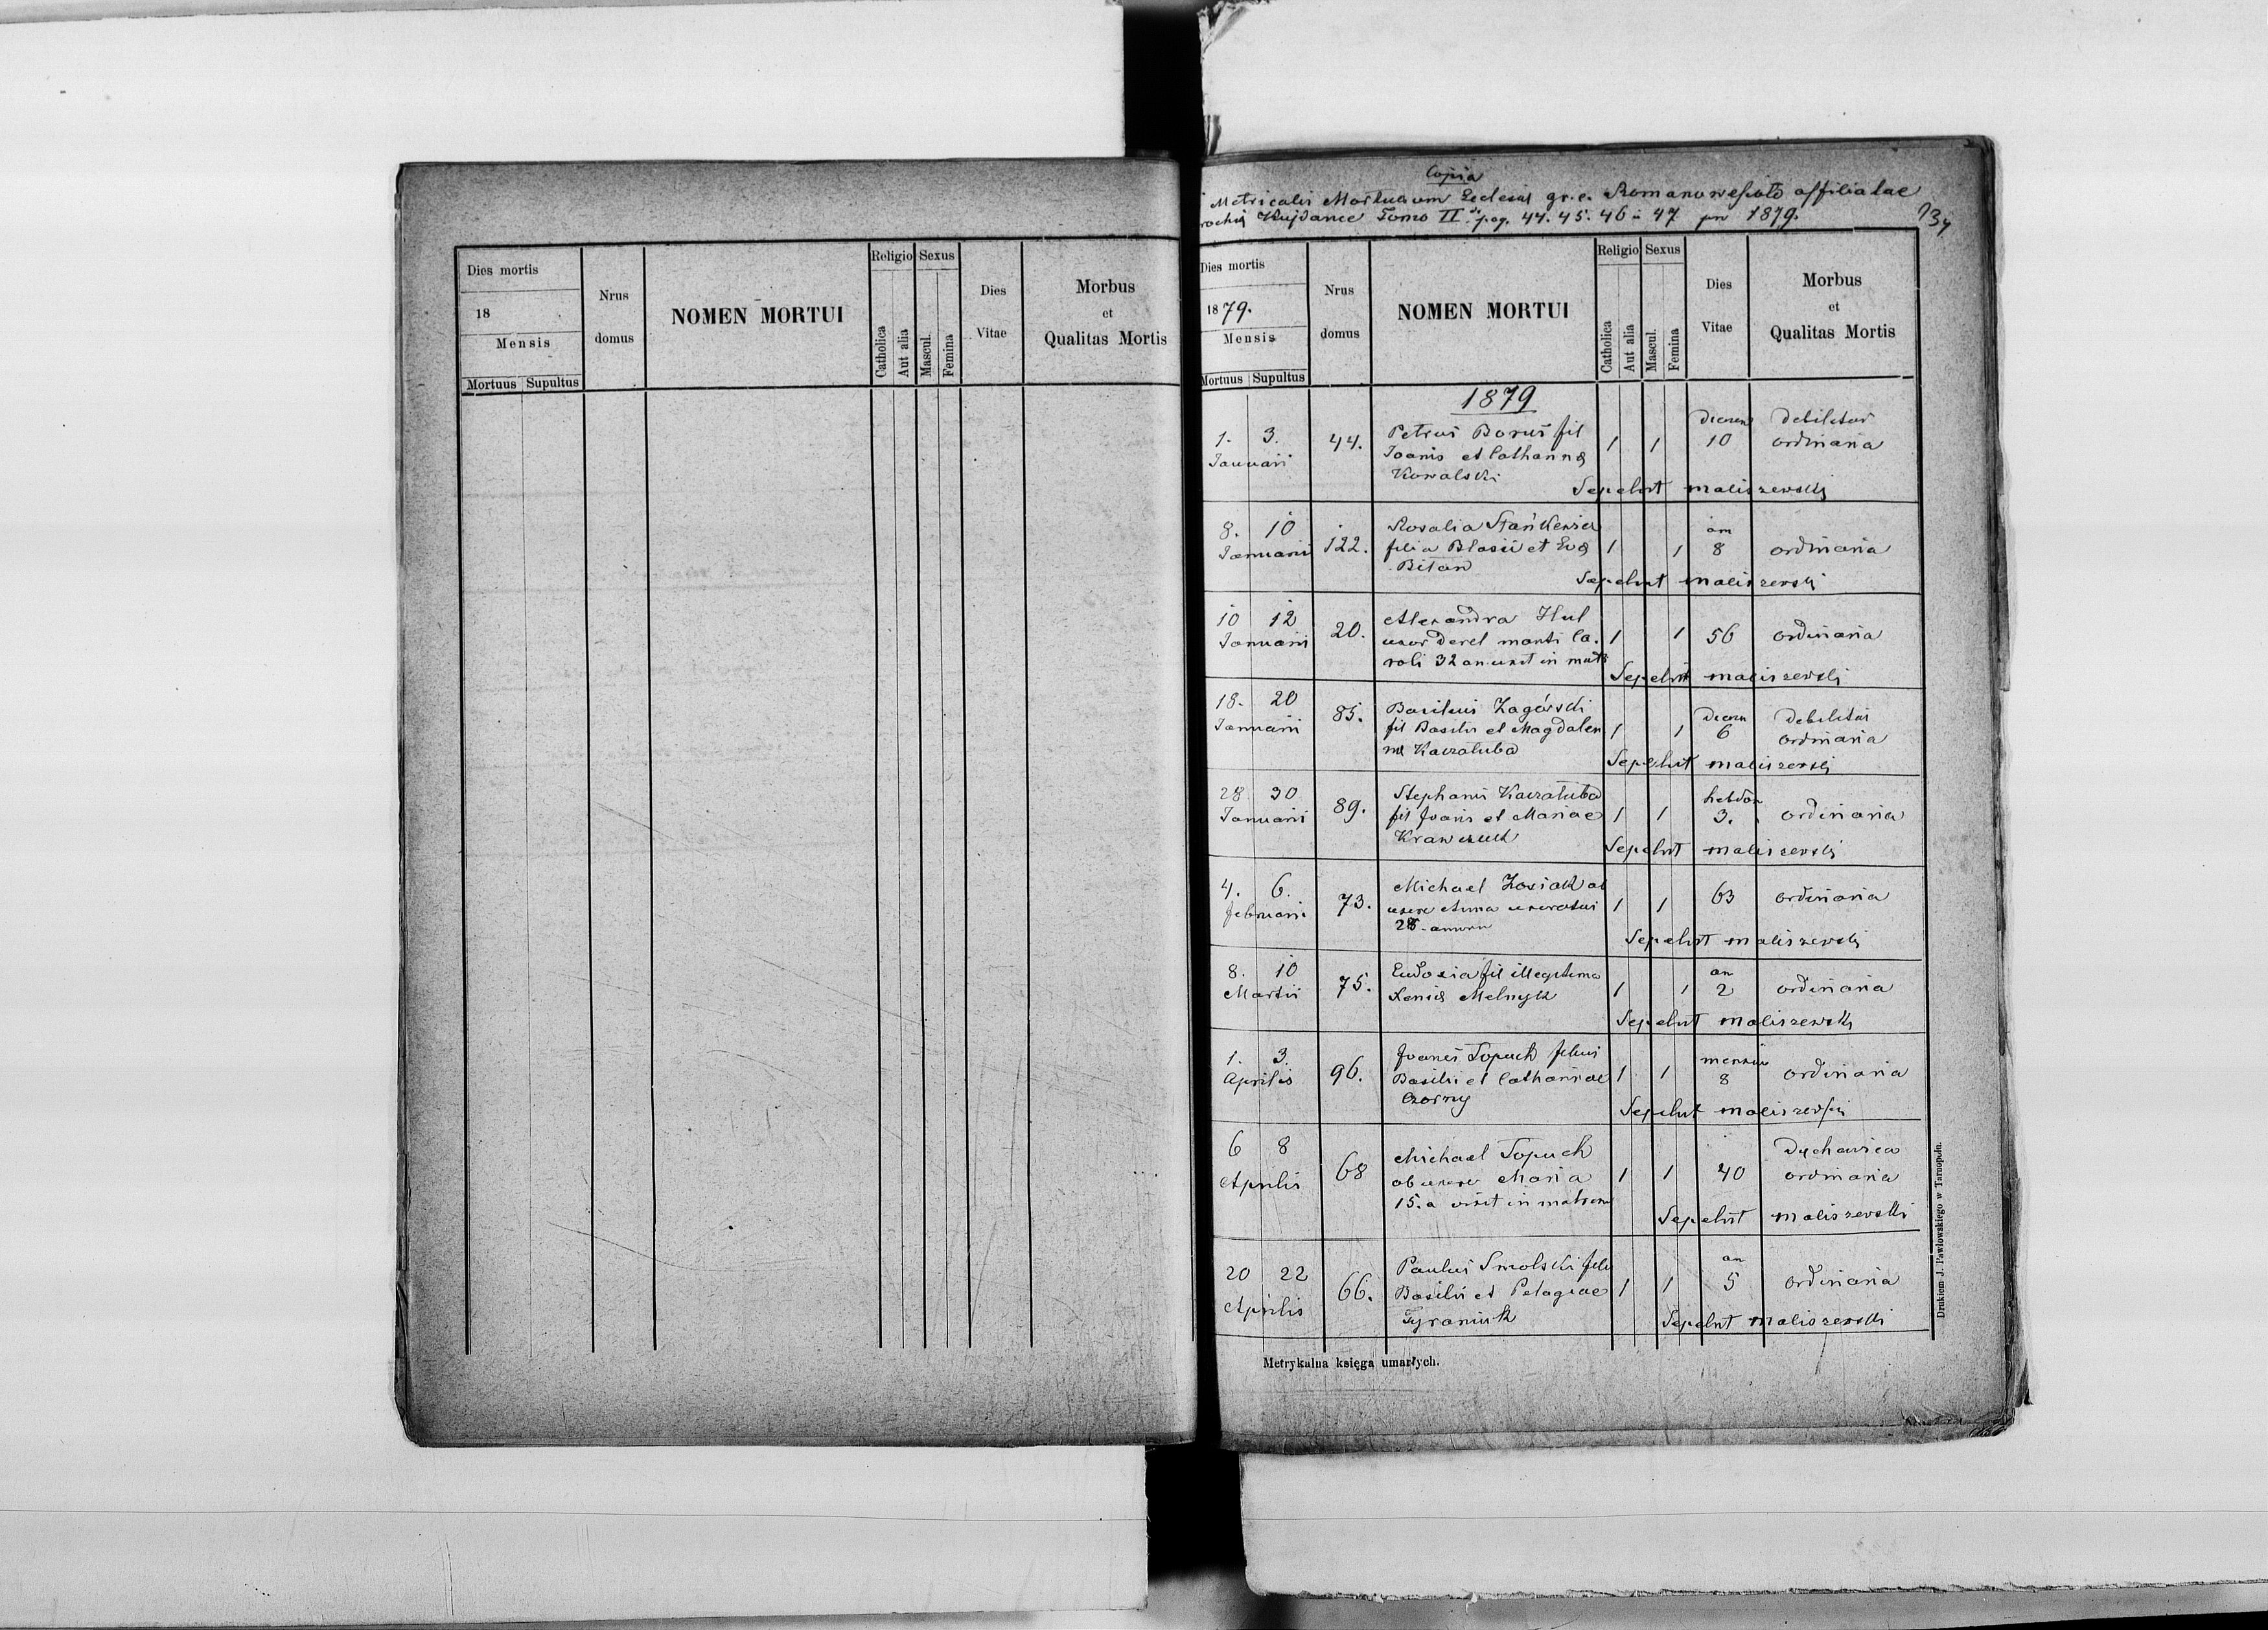 Dies mortis
18
Mensis
Mortuus Supultus
Nrus
domus
NOMEN MORTUI
Religio
Catholica
Aut alia
Sexus
Mascul.
Femina
Dies
Vitae
Morbus
et
Qualitas Mortis
Copia
Metricalis Mortuum Ecclesia gr. c. affiliatae
Kujdance Tomo II pag. 44. 45. 46 47 pro 1879.
Dies mortis
1879.
Mensis
Mortuus Supultus
Nrus
domus
NOMEN MORTUI
Religio
Catholica
Aut alia
Sexus
Mascul.
Femina
Dies
Vitae
Morbus
et
Qualitas Mortis
1879
1. 3. 44. Petrus Borus fil 1 1 dierum 10 debilitas
Januarii Joanis et Catharinæ ordinaria
Kowalski
Sepelivit Maliszewski
8. 10 122. Rosalia Stańkewicz 1 1 an 8 ordinaria
Januarii filia Blasii et Evæ
Bilan
Sepelivit Maliszewski
10 12 20. Alexandra Hul 1 1 56 ordinaria
Januarii uxor derel mariti Ca.
roli 32 an vixit in matr
Sepelivit Maliszewski
18. 20 85. Basilius Zagórski 1 1 dierum 6 debilitas
Januarii fil Basilii et Magdalen ordinaria
næ Kaczałuba
Sepelivit Maliszewski
28 30 89. Stephanus Kaczałuba 1 1 hebdom 3. ordinaria
Januarii fil Joanis et Mariae
Krawczuk
Sepelivit Maliszewski
4. 6. 73. Michael Zosiak ab 1 1 63 ordinaria
Februarii uxore Anna
28 annorum
Sepelivit Maliszewski
8. 10 75. Eudoxia fil illegitima 1 1 an 2 ordinaria
Martii Xeniæ Melnyk
Sepelivit Maliszewski
1. 3. 96. Joanes Topuch filius 1 1 mensium 8 ordinaria
Aprilis Basilii et Catharinae
Czorny
Sepelivit Maliszewski
6 8 68 Michael Topuch 1 1 40 Dychawica
Aprilis ab uxore Maria ordinaria
15. a vixit in matrom
Sepelivit Maliszewski
20 22 66. Paulus Smolski fili 1 1 an 5 ordinaria
Aprilis Basilii et Pelagiae
Tyraniuk
Sepelivit Maliszewski
Metrykalna księga umarłych.
Drukiem J. Pawłowskiego w Tarnopolu.